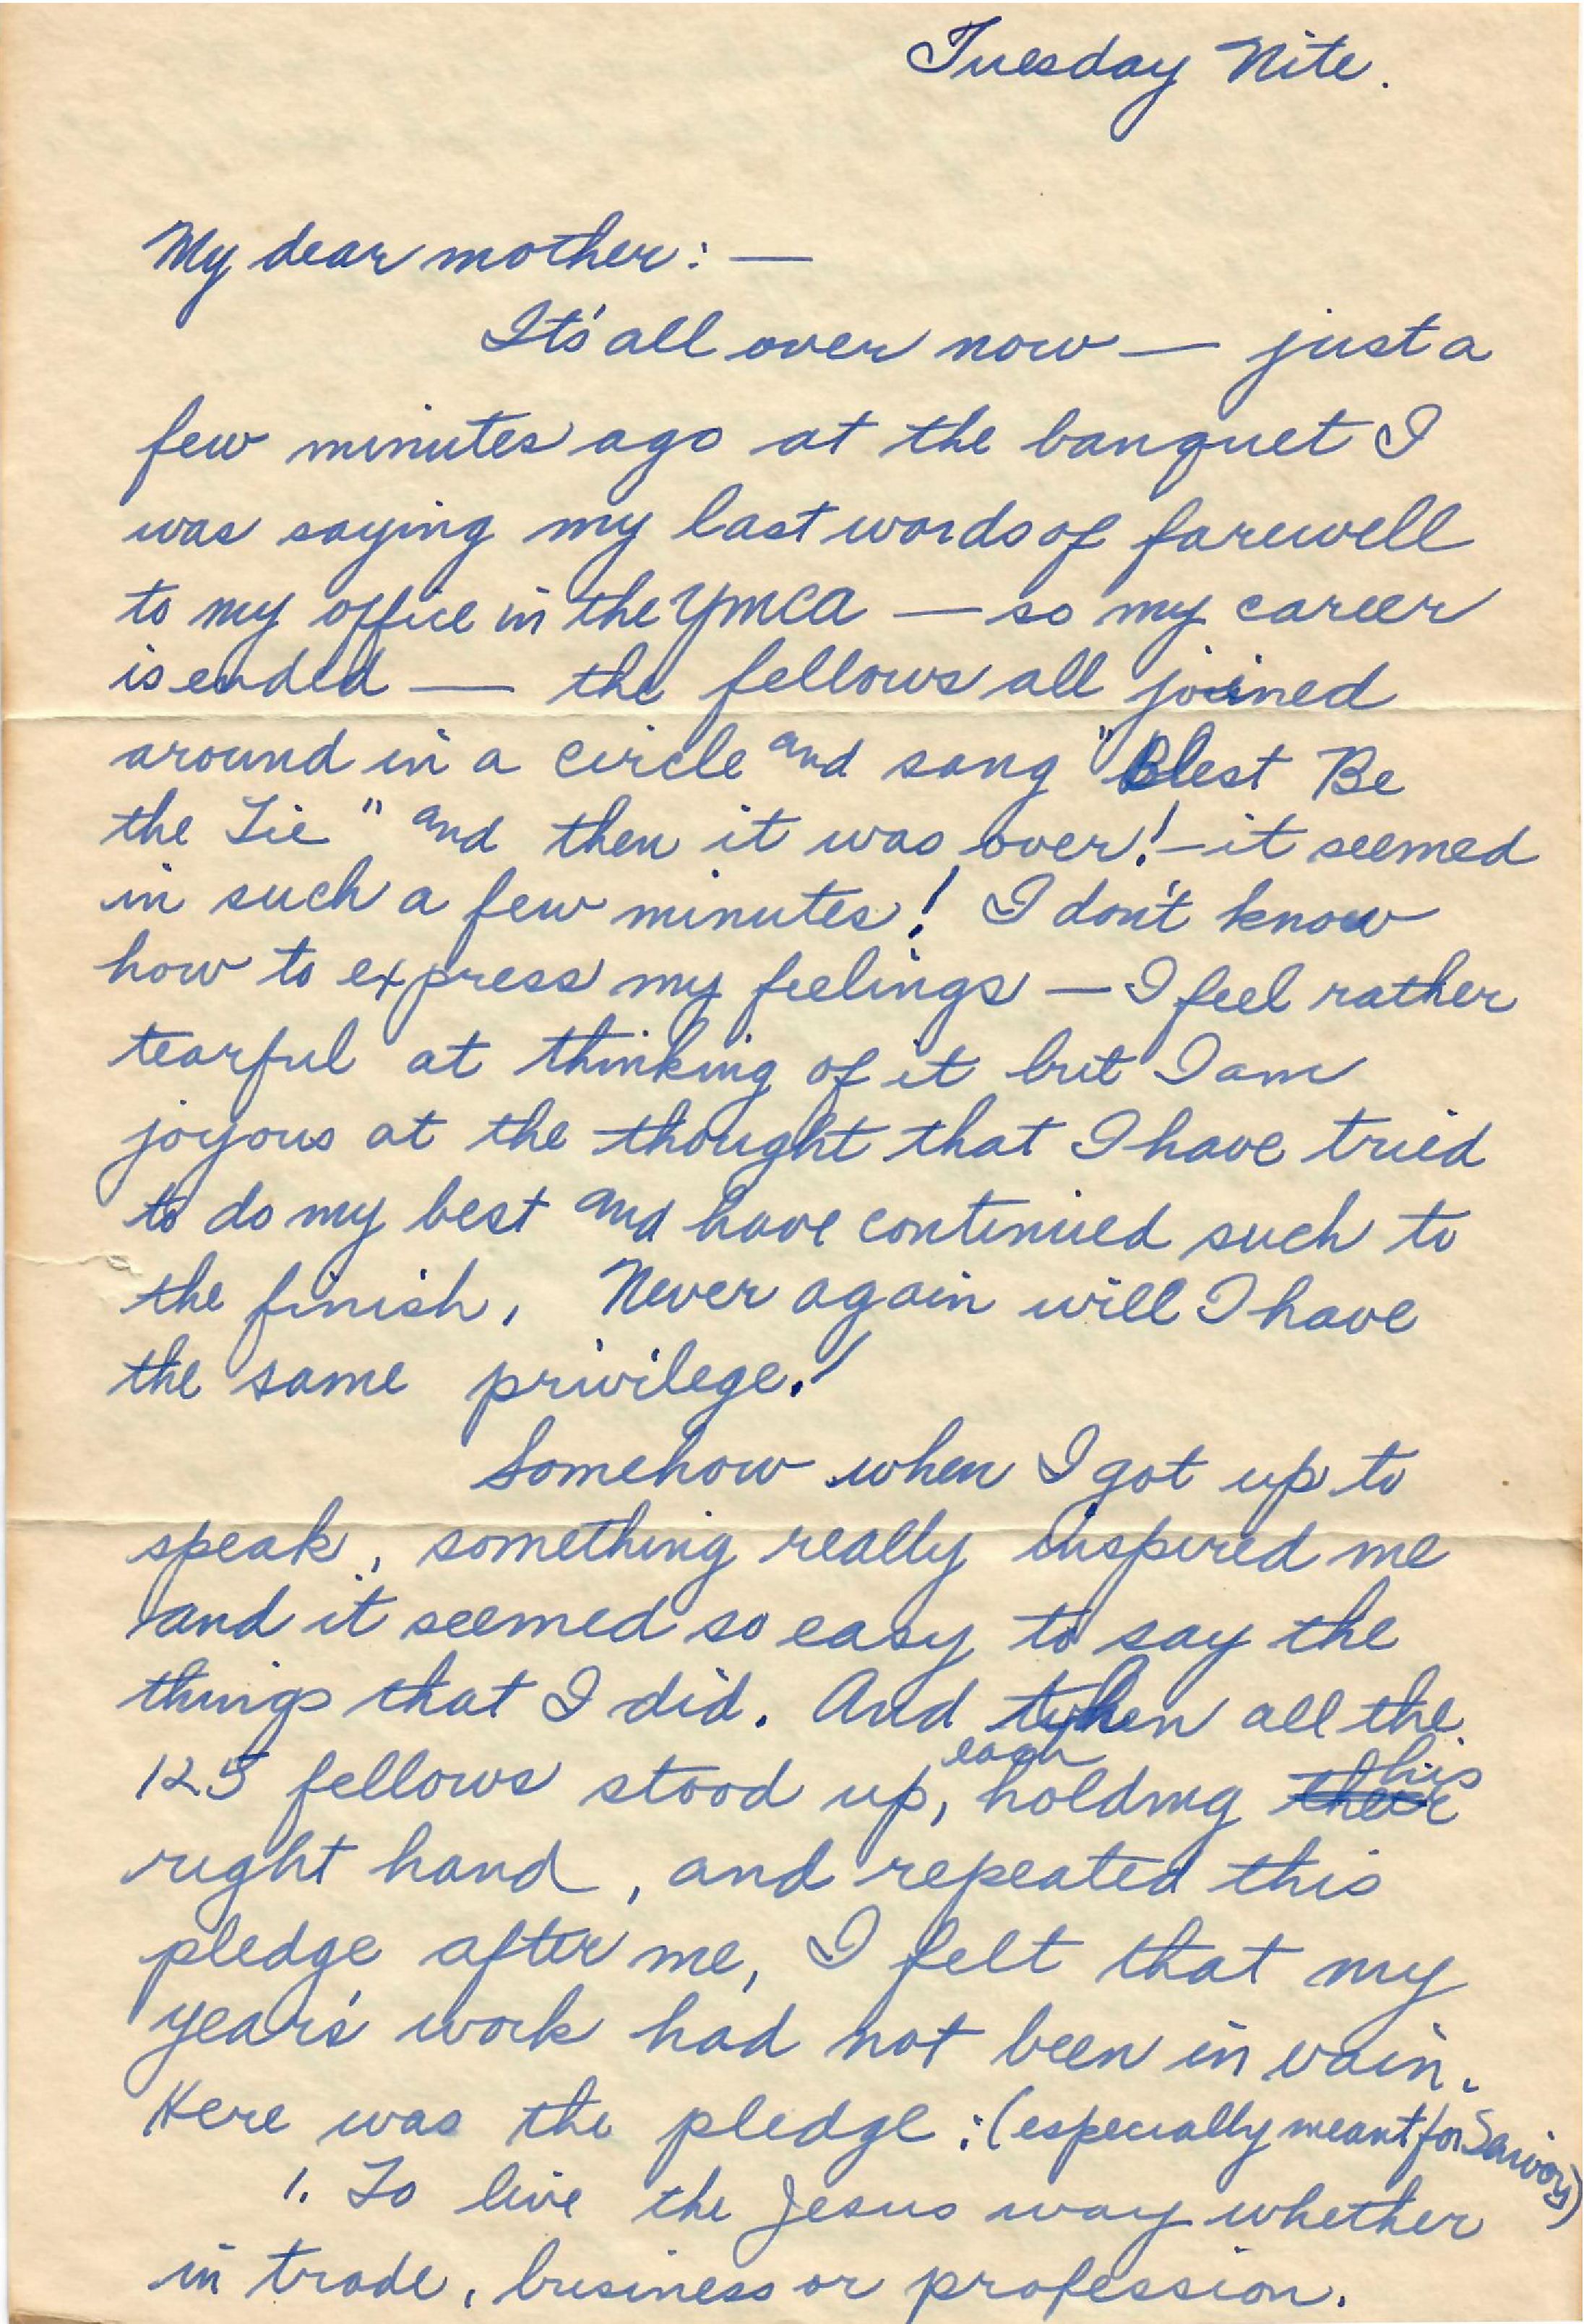 Tuesday Nite.
My dear mother: —
It's all over now — just a
few minutes ago at the banquet I
was saying my last words of farewell
to my office in the YMCA — so my career
is ended — the fellows all joined
around in a circle and sang "Blest Be
the Tie" and then it was over! - it seemed
in such a few minutes! I don't know
how to express my feelings — I feel rather
tearful at thinking of it but I am
joyous at the thought that I have tried
to do my best and have continued such to
the finish. Never again will I have
the same privilege!
Somehow when I got up to
speak, something really inspired me
and it seemed so easy to say the
things that I did. And when all the
125 fellows stood up, each holding his
right hand, and repeated this
pledge after me, I felt that my
year's work had not been in vain.
Here was the pledge: (especially meant for
1. To live the Jesus way whether
in trade, business or profession.